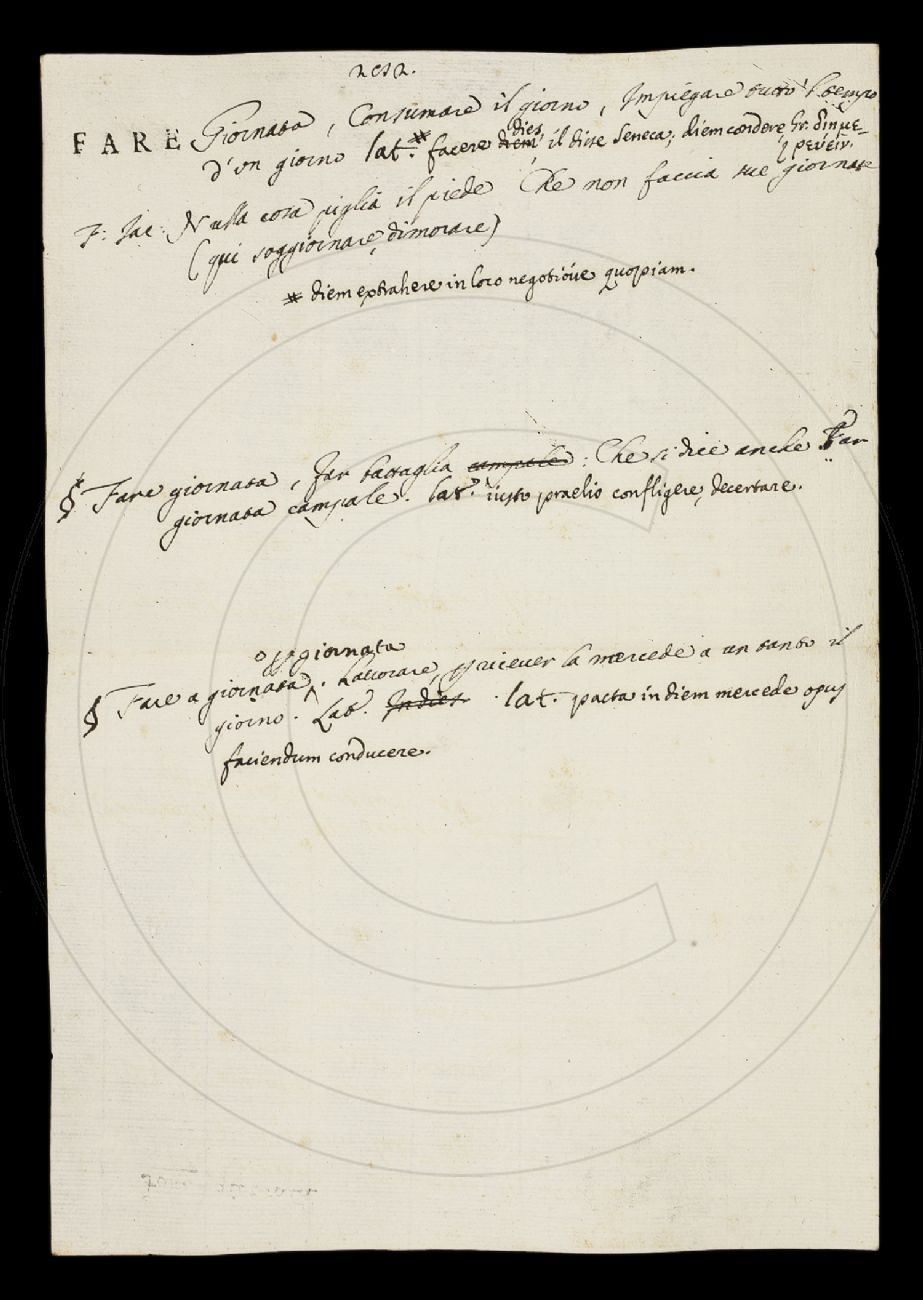 FARE Giornata, Consumare il giorno, Impiegare tutto 'l tempo
d'un giorno lat.* facere diem dies, il disse Seneca, diem condere, Gr. διημε-
ρεύειν.
F: Jac: Nulla cosa piglia il piede Che non faccia sue giornate
(qui soggiornare, dimorare)
* diem extrahere in loco negotiove quopiam.
§ Fare giornata, far battaglia campale: Che si dice anche Far
giornata campale. lat. iusto praelio confligere, decertare.
o giornata
§ Fare a giornata. Lavorare, e ricever la mercede a un tanto il
giorno. Lat. In dies. lat. pacta in diem mercede opus
faciendum conducere.